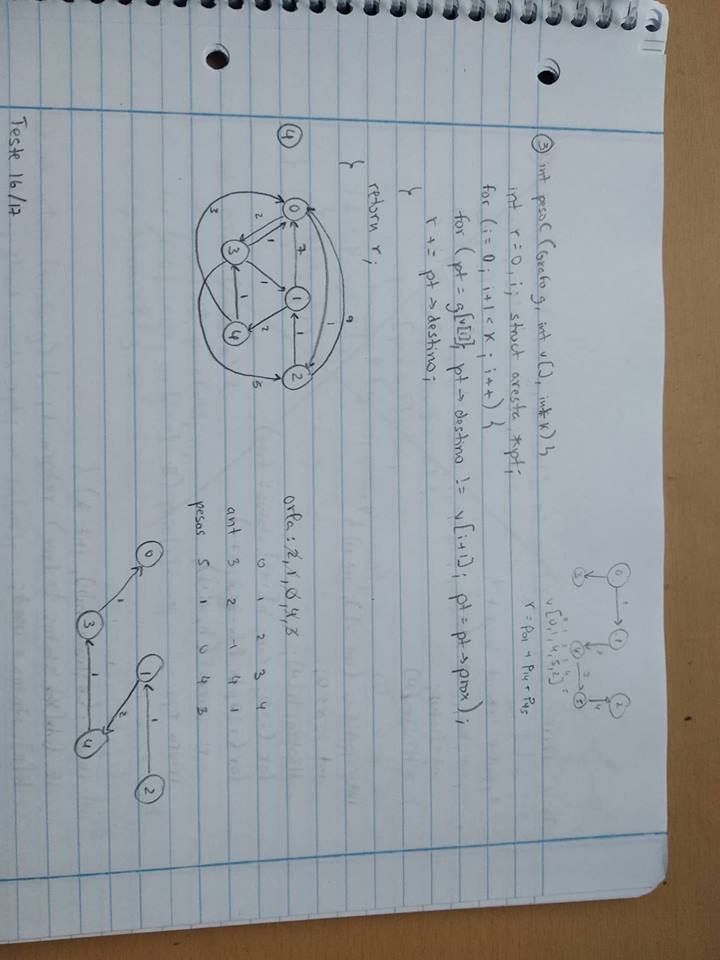 0 1 1
3 4 3 5 4 2
v[0,1,4,5,2]
r = p01 + p14 + p45
③ int pesoC (Grafo g, int v[], int k) {
int r=0, i; struct aresta *pt;
for (i=0; i+1<k; i++) {
for (pt = g[v[i]]; pt → destino != v[i+1]; pt = pt → prox);
r += pt → destino;
}
return r;
}
④
9
1
0 7 1 1 2
2 1 1 2 5
3 1 4
3
orla: 2, 1, 0, 4, 3
0 1 2 3 4
ant 3 2 -1 4 1
pesos 5 1 0 4 3
0 1 1 2
1 2
3 1 4
Teste 16/17